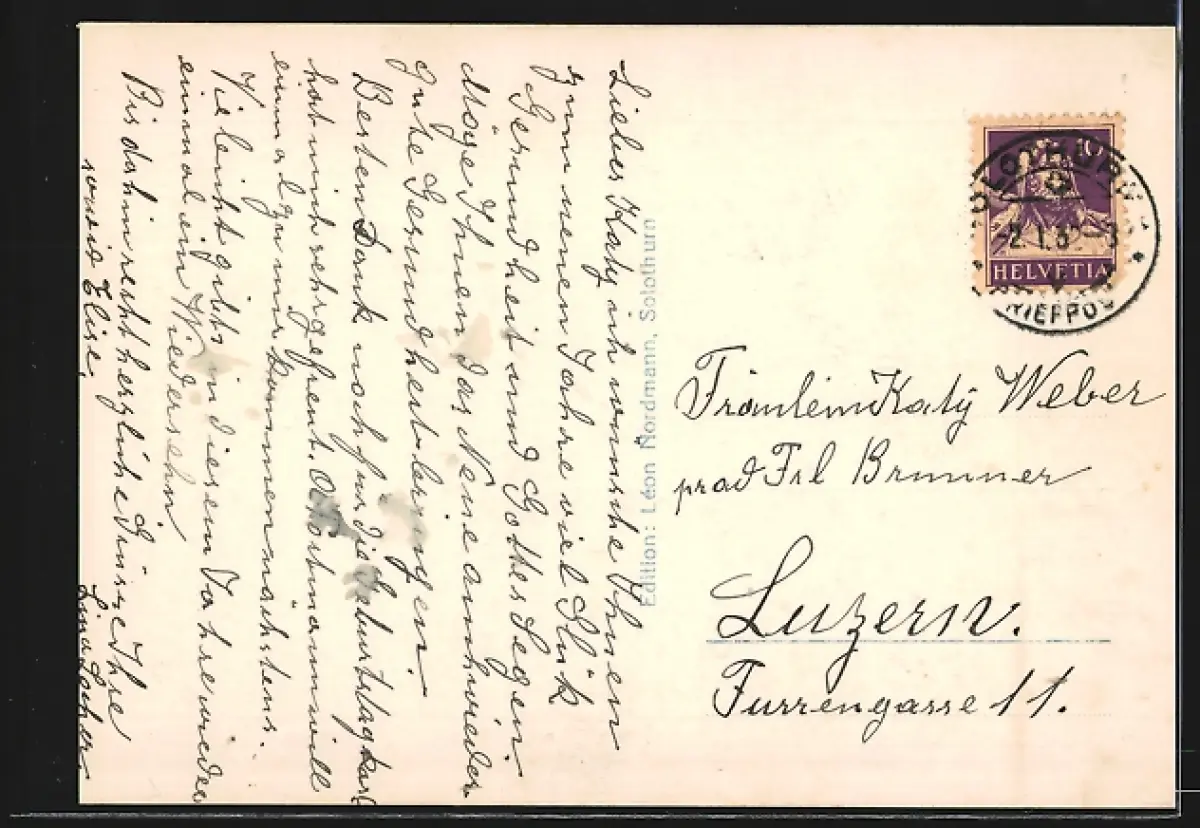 Liebes Katy ich wünsche Ihnen
zum neuen Jahre viel Glük
Gesundheit und Gottes Segen.
Möge Ihnen das Neue auch wieder
gute Gesundheit bringen.
Besten Dank noch für die Geburtstagkart
hat mich sehr gefreut.
einmal zu mir kommen nächstens.
Vieleicht gibts in diesem Jahre wieder
einmal ein Wiedersehn
Bis dahin recht herzliche Grüsse Ihre
sowie Elise, Lina
Edition: Léon Nordmann, Solothurn
10
SOLOTHURN
2.1.3
HELVETIA
BRIEFPOST
Fräulein Katy Weber
prad Frl Brunner
Luzern.
Furrengasse 11.